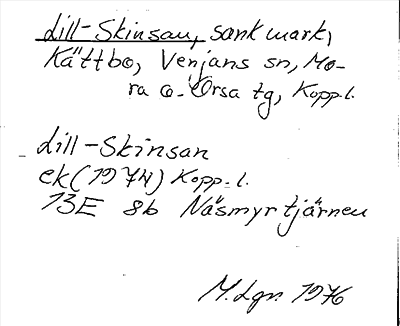 Lill-Skinsan, sank mark,
Kättbo, Venjans sn, Mo-
ra o. Orsa tg, Kopp.l.
Lill-Skinsan
ek (1974) Kopp.l.
13E 8b Näsmyrtjärnen
M.Lgr. 1976